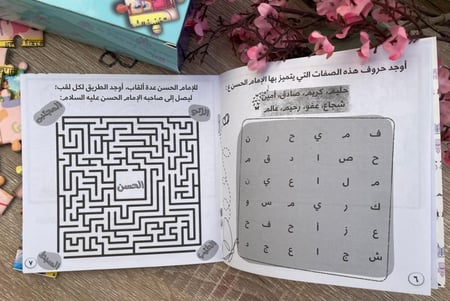 أوجد حروف هذه الصفات التي يتميز بها الإمام الحسن
حليم، كريم، صادق، أمين
شجاع، عفو، رحيم، عالم.
ف م ي ح ر ن
ح ص ا د ق م
م ل ا ع ي ن
ك ر ي م س و
ع ز أ ح ف ح
ش ج ا ع ج د
٦
للإمام الحسن عدة ألقاب، أوجد الطريق لكل لقب؛
ليصل إلى صاحبه الإمام الحسن عليه السلام:
الحسن
٧